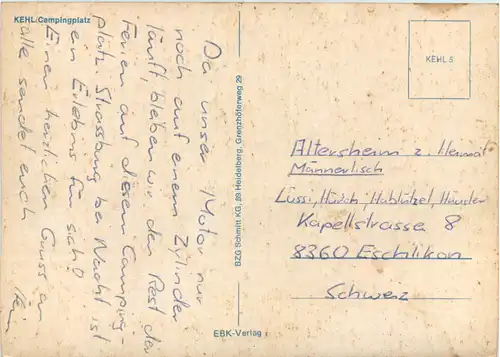 KEHL Campingplatz
Da unser Motor nur
noch auf einem Zylinder
läuft bleiben wir den Rest der
Ferien auf diesem Camping-
platz. Strassburg bei Nacht ist
ein Erlebnis für sich!
Einen herzlichen Gruss an
alle sendet euch
BZG Schmitt KG, 69 Heidelberg, Grenzhöferweg 29
EBK-Verlag
KEHL 5
Altersheim z. Heimat
Männertisch
Lüssi, Hürlich, Hablützel, Häusler
Kapellstrasse 8
8360 Eschlikon
Schweiz